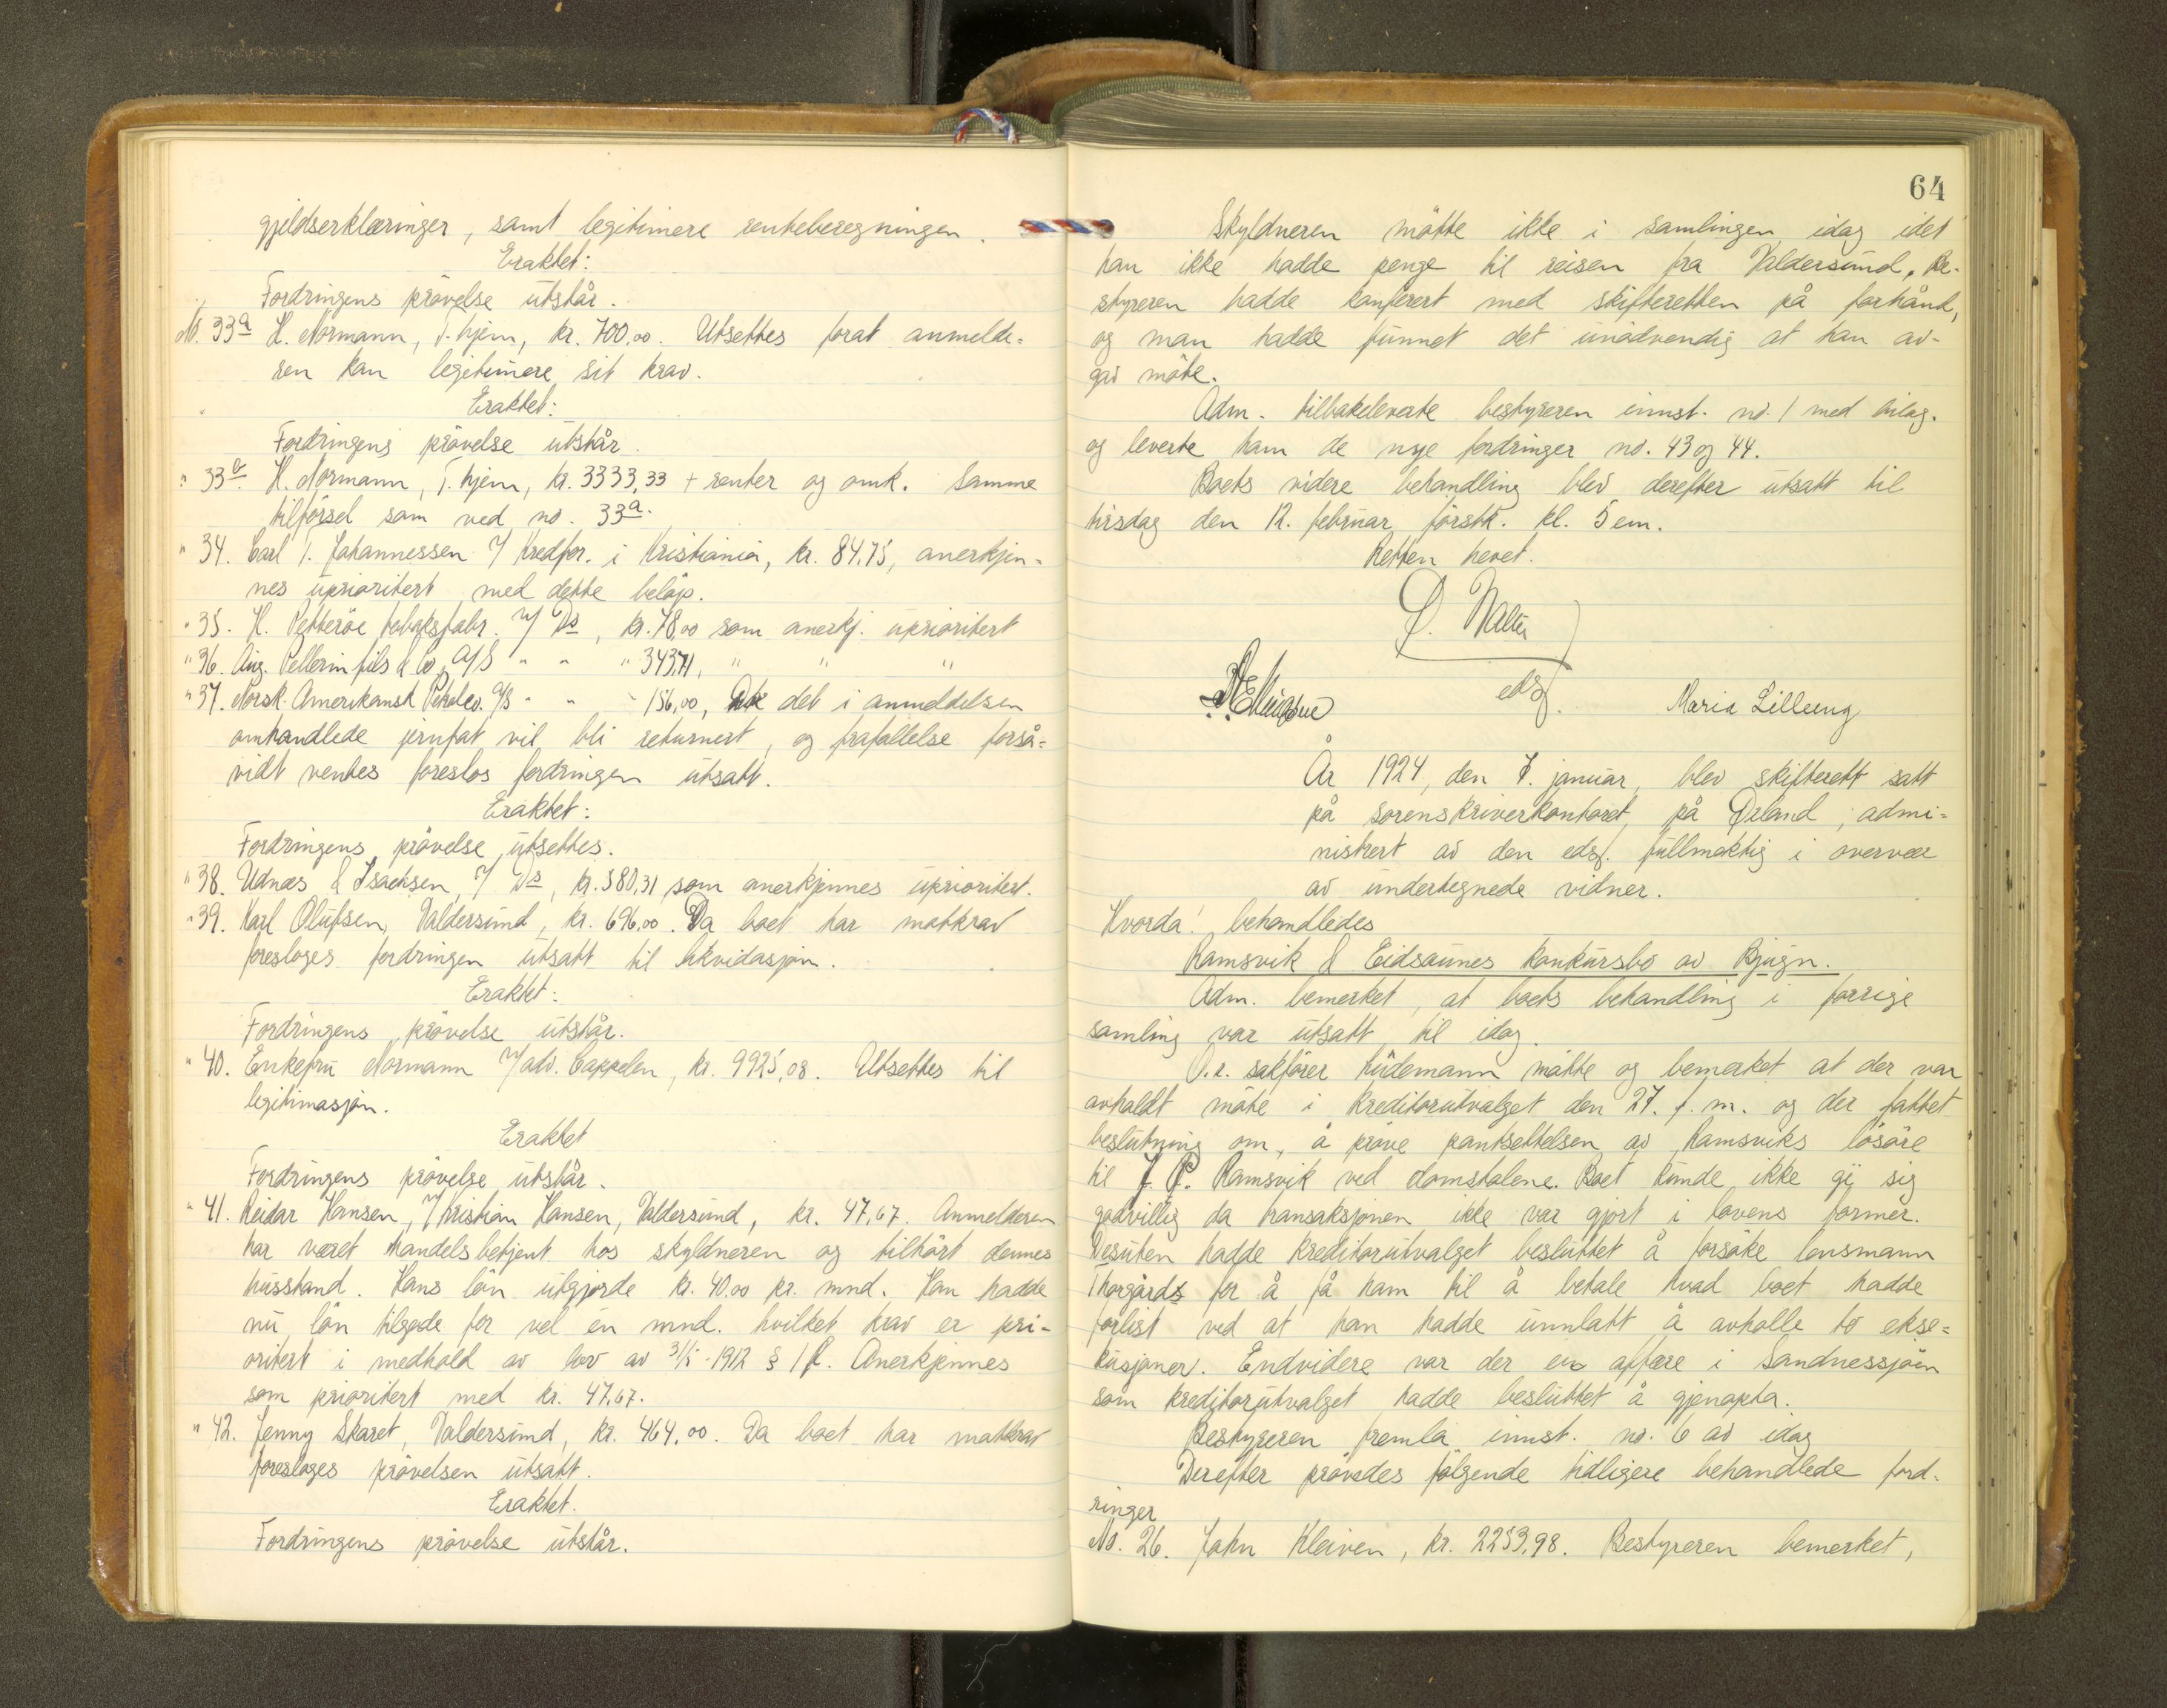 gjeldserklæringer, samt legitimere renteberegningen.
Eraktet:
Fordringens prøvelse utstår.
No. 33a H. Normann, T.hjem, kr. 700,00. Utsettes forat anmelde-
ren kan legitimere sit krav.
Eraktet:
Fordringens prøvelse utstår.
" 33b. H. Normann, T.hjem, kr. 3333,33 + renter og omk. Samme
tilførsel som ved no. 33a.
" 34. Carl I. Johannessen v/ Kredfor. i Kristiania, kr. 84,75, anerkjen-
nes uprioritert med dette beløp.
" 35. H. Petterøe tobaksfabr. v/ Do, kr. 78,00 som anerkj. uprioritert
" 36. Aug. Pellerin fils & Co, A/S " " " 343,71, " " "
" 37. Norsk-Amerikansk Petroleo. A/S " " " 156,00, det i anmeldelsen
omhandlede jernfat vil bli returnert, og frafallelse forså-
vidt ventes foreslos fordringen utsatt.
Eraktet:
Fordringens prøvelse utsettes.
" 38. Udnæs & Isachsen, v/ Do, kr. 580,31 som anerkjennes uprioritert.
" 39. Karl Olufsen, Valdersund, kr. 696,00. Da boet har motkrav
foresloges fordringen utsatt til likvidasjon.
Eraktet:
Fordringens prøvelse utstår.
" 40. Enkefru Normann v/adv. Cappelen, kr. 9925,08. Utsettes til
legitimasjon.
Eraktet
Fordringens prøvelse utstår.
" 41. Reidar Hansen, v/Kristian Hansen, Valdersund, kr. 47,67. Anmelderen
har været handelsbetjent hos skyldneren og tilhørt dennes
husstand. Hans løn utgjorde kr. 40,00 pr. mnd. Han hadde
nu løn tilgode for vel en mnd. hvilket krav er pri-
oritert i medhold av lov av 3/5-1912 § 1 f. Anerkjennes
som prioritert med kr. 47,67.
" 42. Jenny Skaret, Valdersund, kr. 464,00. Da boet har motkrav
foresloges prøvelsen utsatt.
Eraktet.
Fordringens prøvelse utstår.
64
Skyldneren møtte ikke i samlingen idag idet
han ikke hadde penge til reisen fra Valdersund. Be-
styreren hadde konferert med skifteretten på forhånd,
og man hadde funnet det unødvendig at han av-
gav møte.
Adm. tilbakeleverte bestyreren innst. no. 1 med bilag.
og leverte ham de nye fordringer no. 43 og 44.
Boets videre behandling blev derefter utsatt til
tirsdag den 12. februar førstk. kl. 5 em.
Retten hevet.
edsf.
Maria Lilleeng
År 1924, den 7. januar, blev skifterett satt
på sorenskriverkontoret på Ørland, admi-
nistrert av den edsf. fullmektig i overvær
av undertegnede vidner.
Hvorda! behandledes
Ramsvik & Eidsaunes konkursbo av Bjugn.
Adm. bemerket, at boets behandling i forrige
samling var utsatt til idag.
O.r. sakfører Hüdemann møtte og bemerket at der var
avholdt møte i kreditorutvalget den 27. f. m. og der fattet
beslutning om, å prøve pantsettelsen av Ramsviks løsøre
til J. P. Ramsvik ved domstolene. Boet kunde ikke gi sig
godvillig da transaksjonen ikke var gjort i lovens former.
Desuten hadde kreditorutvalget besluttet å forsøke lensmann
Thorgårds for å få ham til å betale hvad boet hadde
forlist ved at han hadde unnlatt å avholle to ekse-
kusjoner. Endvidere var der en affære i Sandnessjøen
som kreditorutvalget hadde besluttet å gjenopta.
Bestyreren fremla innst. no. 6 av idag
Derefter prøvedes følgende tidligere behandlede ford-
ringer
No. 26. John Kleiven, kr. 2253,98. Bestyreren bemerket,